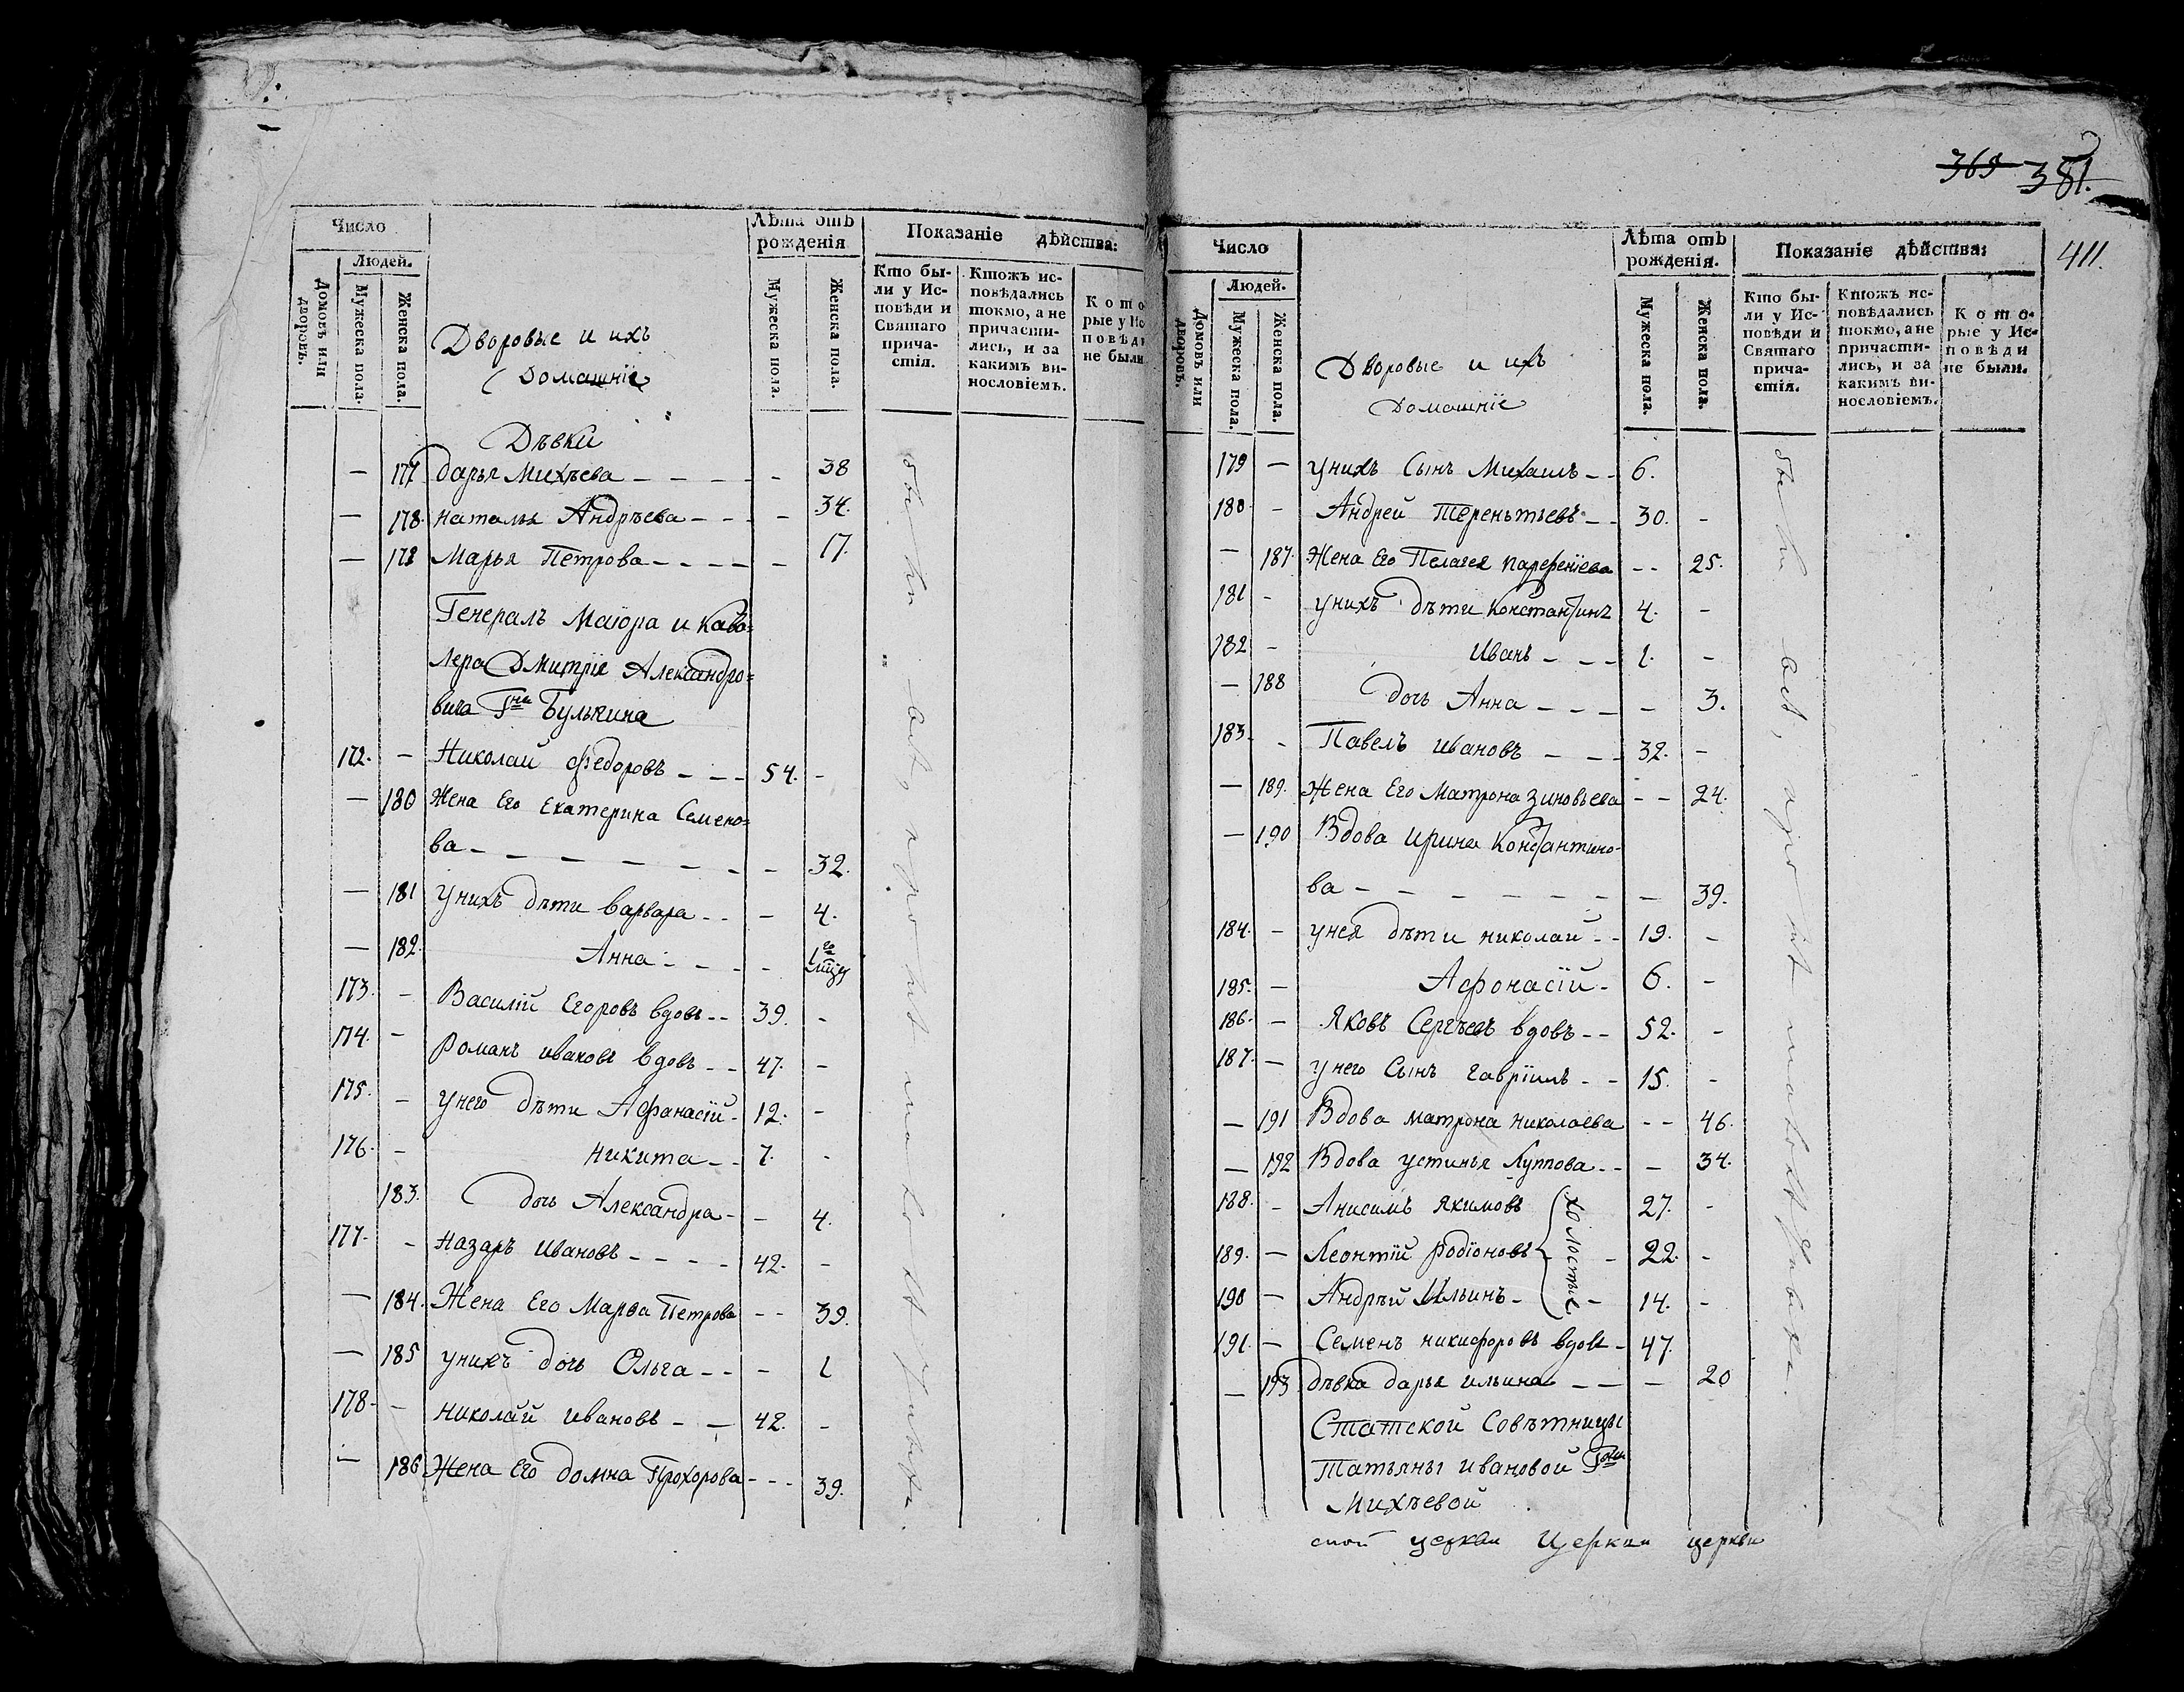 Число
Людей.
Домовъ или дворовъ.
Мужеска пола.
Женска пола.
Дворовые и ихъ
Домашніе
Лѣта отъ рожденія
Мужеска пола.
Женска пола.
Показаніе дѣйства:
Кто бы-
ли у Ис-
повѣди и
Святаго
прича-
стія.
Ктожъ ис-
повѣдались
токмо, а не
причасти-
лись, и за
какимъ ви-
нословіемъ.
Кото
рые у Ис
повѣди
не были
Дѣвки
— 177 дарья Михѣева — — — — 38
— 178. наталья Андрѣева — — — 34.
— 179 Марья Петрова — — — — 17.
Генералъ Маіора и Кава=
лера Дмитрія Александро=
вича Гна Булыгина
172. — Николай Федоровъ — — — 54. -
— 180 Жена Его Екатерина Семено=
ва — — — — — — — 32.
— 181 унихъ дѣти Варвара — — — 4.
— 182. Анна — — — —
173. — Василій Егоровъ вдовъ — — 39. -
174. — Романъ ивановъ вдовъ — — 47. -
175. — унего дѣти Афанасій — 12. -
176. — никита — — 7. -
183. дочь Александра — — 4.
177. — назаръ ивановъ — — — — 42. -
— 184. Жена Его Марфа Петрова — — 39.
— 185 унихъ дочь Ольга — — — 1
178. — николай ивановъ — — 42. -
— 186 Жена Его домна Прохорова — — — 39.
363 381.
411.
Число
Людей.
Домовъ или дворовъ.
Мужеска пола.
Женска пола.
Дворовые и ихъ
Домашніе
Лѣта отъ рожденія.
Мужеска пола.
Женска пола.
Показаніе дѣйства:
Кто бы-
ли у Ис-
повѣди и
Святаго
прича-
стія.
Ктожъ ис-
повѣдались
токмо, а не
причасти-
лись, и за
какимъ ви-
нословіемъ.
Кото-
рые у Ис-
повѣди
не были.
179 — унихъ Сынъ Михаилъ — — 6.
180 — Андрей Терентьевъ — — 30. -
— 187. Жена Его Пелагея парфеніева — — 25.
181 — унихъ дѣти константинъ 4. -
182 — Иванъ — — — 1. -
— 188 дочь Анна — — — — 3.
183. — Павелъ ивановъ — — — 32. -
— 189. Жена Его Матрона зиновьева — — 24.
— 190 Вдова Ирина Константино-
ва — — — — — — — 39.
184. — унея дѣти николай — — 19. -
185. — Афонасій — 6. -
186. — Яковъ Сергѣевъ вдовъ — — 52. -
187. — унего Сынъ гавріилъ — — 15. -
— 191 Вдова матрона николаева — — 46.
— 192 Вдова устинья Луппова — — — 34.
188. — Анисимъ якимовъ 27. -
189. — Леонтій родіоновъ — 22. -
190 — Андрѣй Ильинъ — — 14. -
холостые
191. — Семенъ никифоровъ вдовъ — 47.
— 193 дѣвка дарья ильина — — — 20
Статской Совѣтницы
Татьяны ивановой Гжи
Михѣевой
церкви Церкви церкви